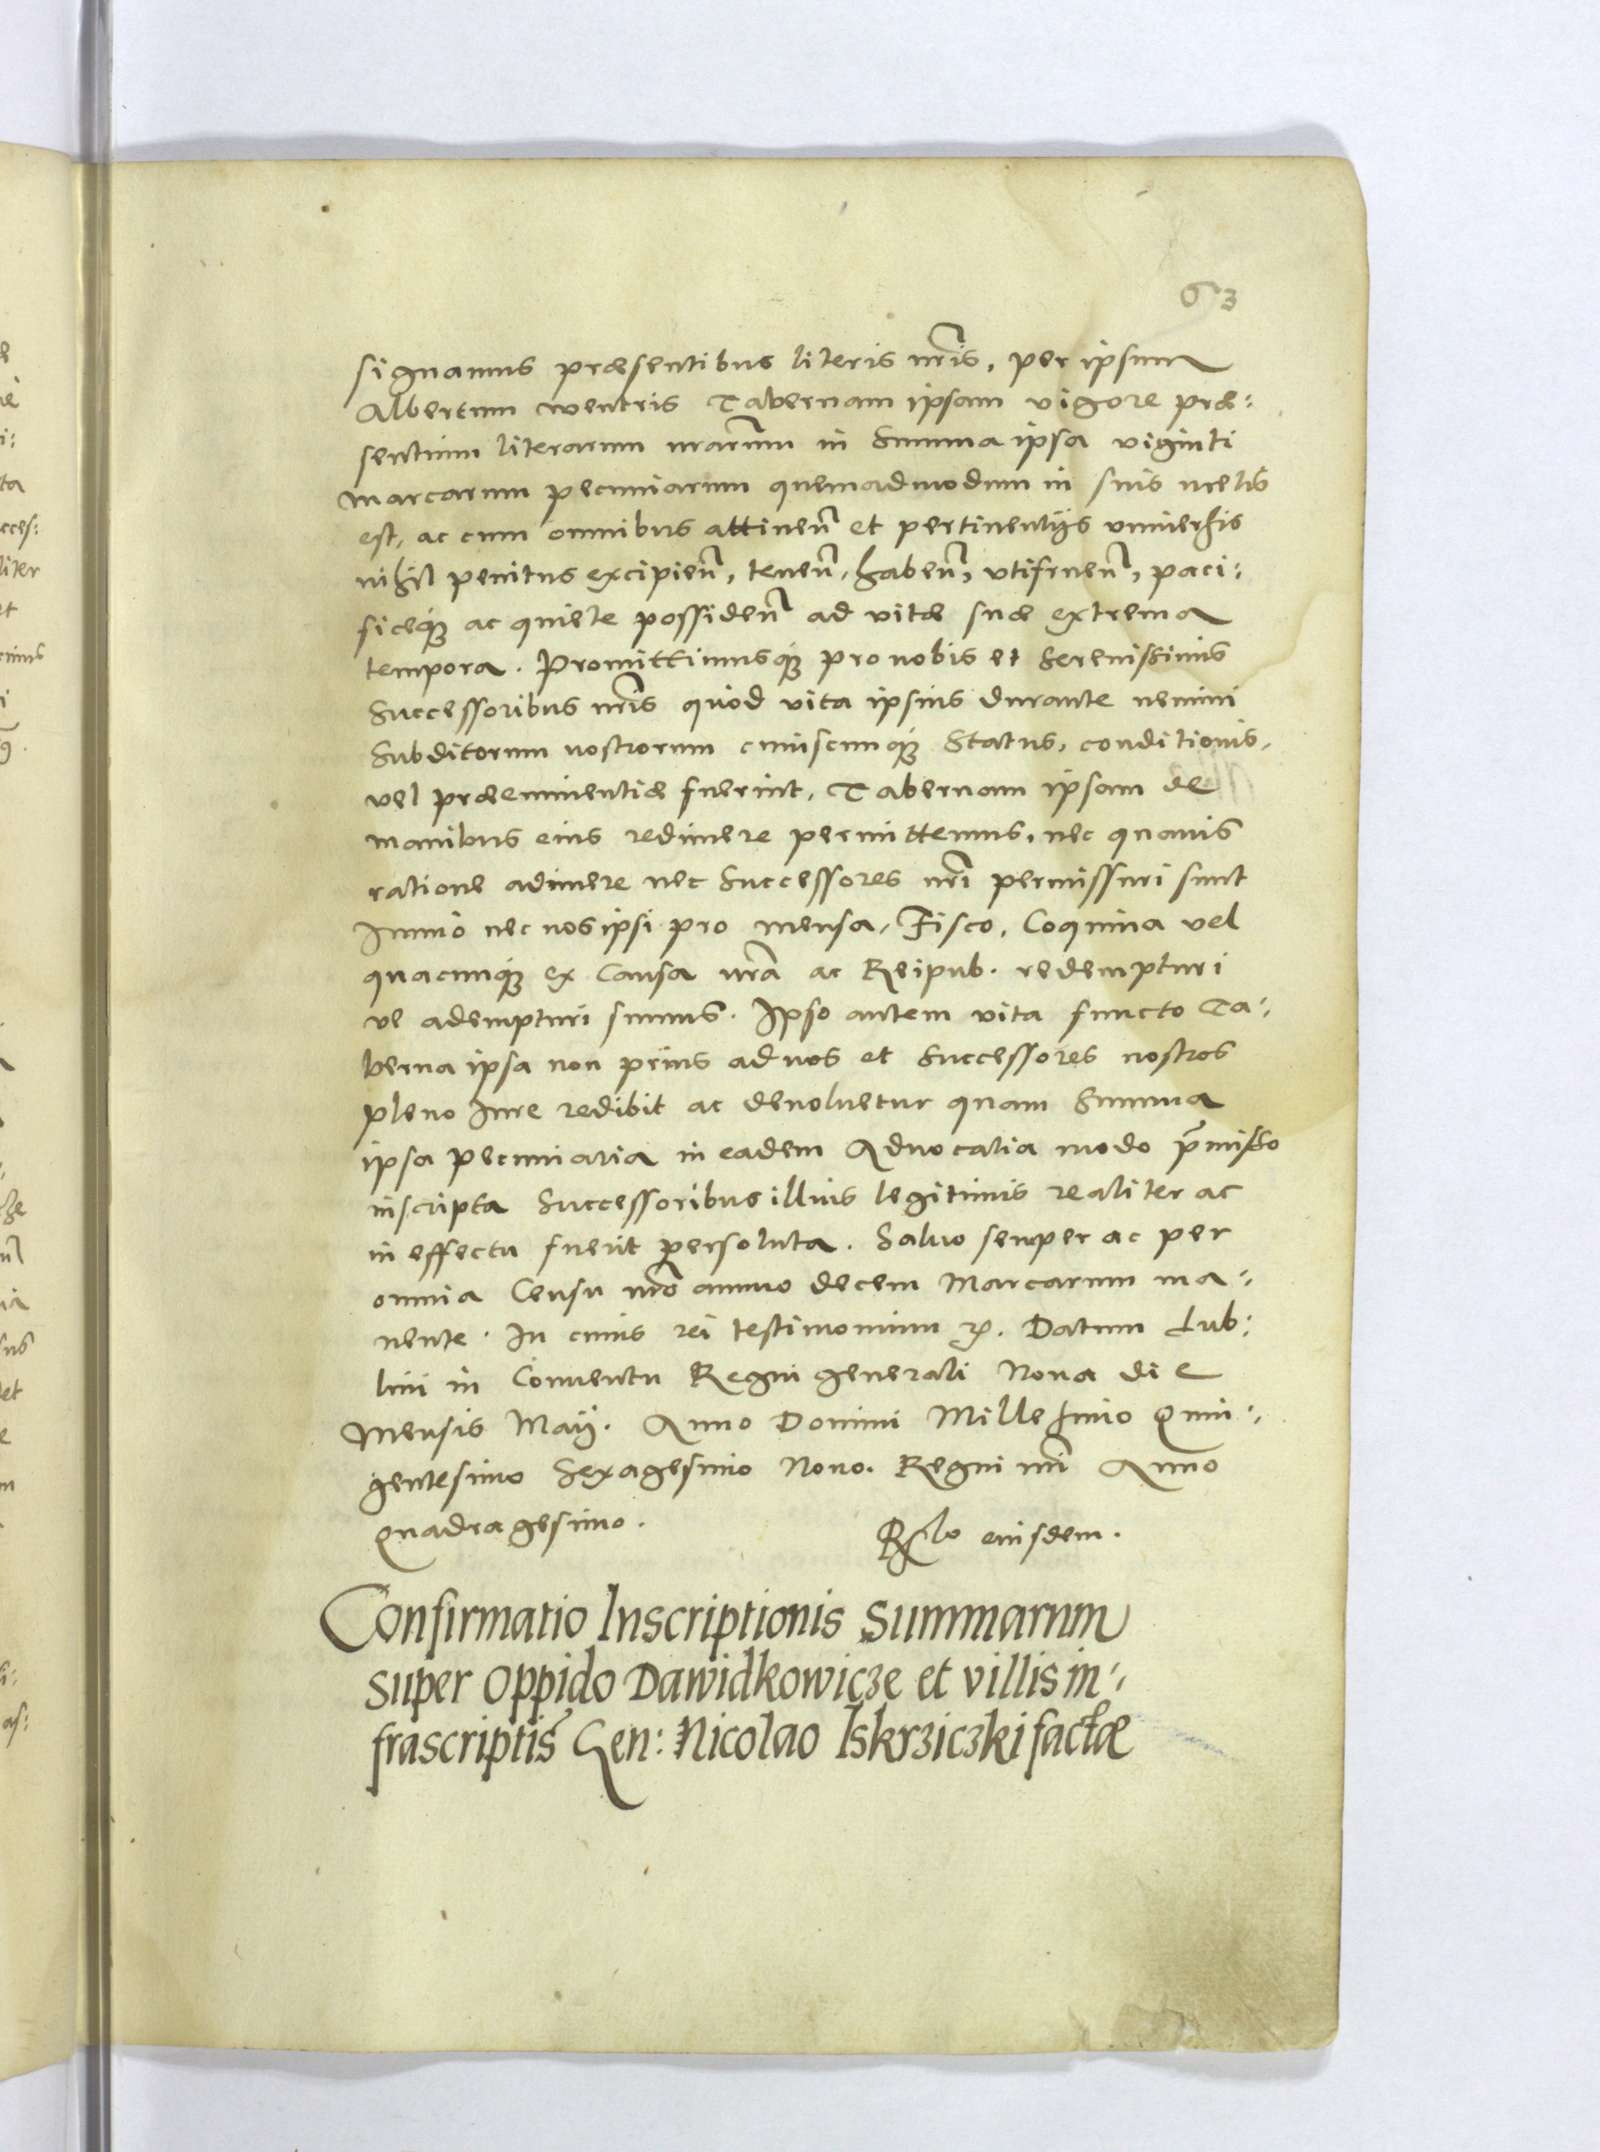 63
signamus præsentibus literis nr̃is, per ipsum
Albertum wentris Tabernam ipsam vigore præ:
sentium literarum nrarũm in Summa ipsa viginti
marcarum pecuniarum quemadmodum in suis metis
est, ac cum omnibus attinen̄ et pertinentijs vniuersis
nihil penitus excipien̄, tenen̄, haben̄, vtifruen̄, paci:
ficeq́ue ac quiete possiden̄ ad vitæ suæ extrema
tempora. Promittimusq́ue pro nobis et Serenissimis
Successoribus nr̃is quod vita ipsius durante nemini
Subditorum nostrorum cuiuscunq́ue Status, conditionis,
vel præeminentiæ fuerint, Tabernam ipsam de
manibus eius redimere permittemus, nec quauis
ratione adimere nec Successores nr̃i permissuri sunt
Immò nec nos ipsi pro mensa, Fisco, Coquina vel
quacunq́ue ex Causa nr̃a ac Reipub. redempturi
ve adempturi sumus. Ipso autem vita functo Ta:
berna ipsa non prius ad nos et Successores nostros
pleno Iure redibit ac deuoluetur quam Summa
ipsa pecuniaria in eadem Aduocatia modo p̄misso
inscripta Successoribus illius legitimis realiter ac
in effectu fuerit persoluta. Saluo semper ac per
omnia Censu nr̃o annuo decem Marcarum ma:
nente. In cuius rei testimonium Datum Lub:
lini in Conuentu Regni generali Nona die
Mensis Maij. Anno Domini Millesimo Quin:
gentesimo Sexagesimo Nono. Regni nr̃i Anno
Quadragesimo. eiusdem.
Confirmatio Inscriptionis Summarum
super Oppido Dawidkowicze et villis in:
frascriptis Gen: Nicolao Iskrziczki factæ